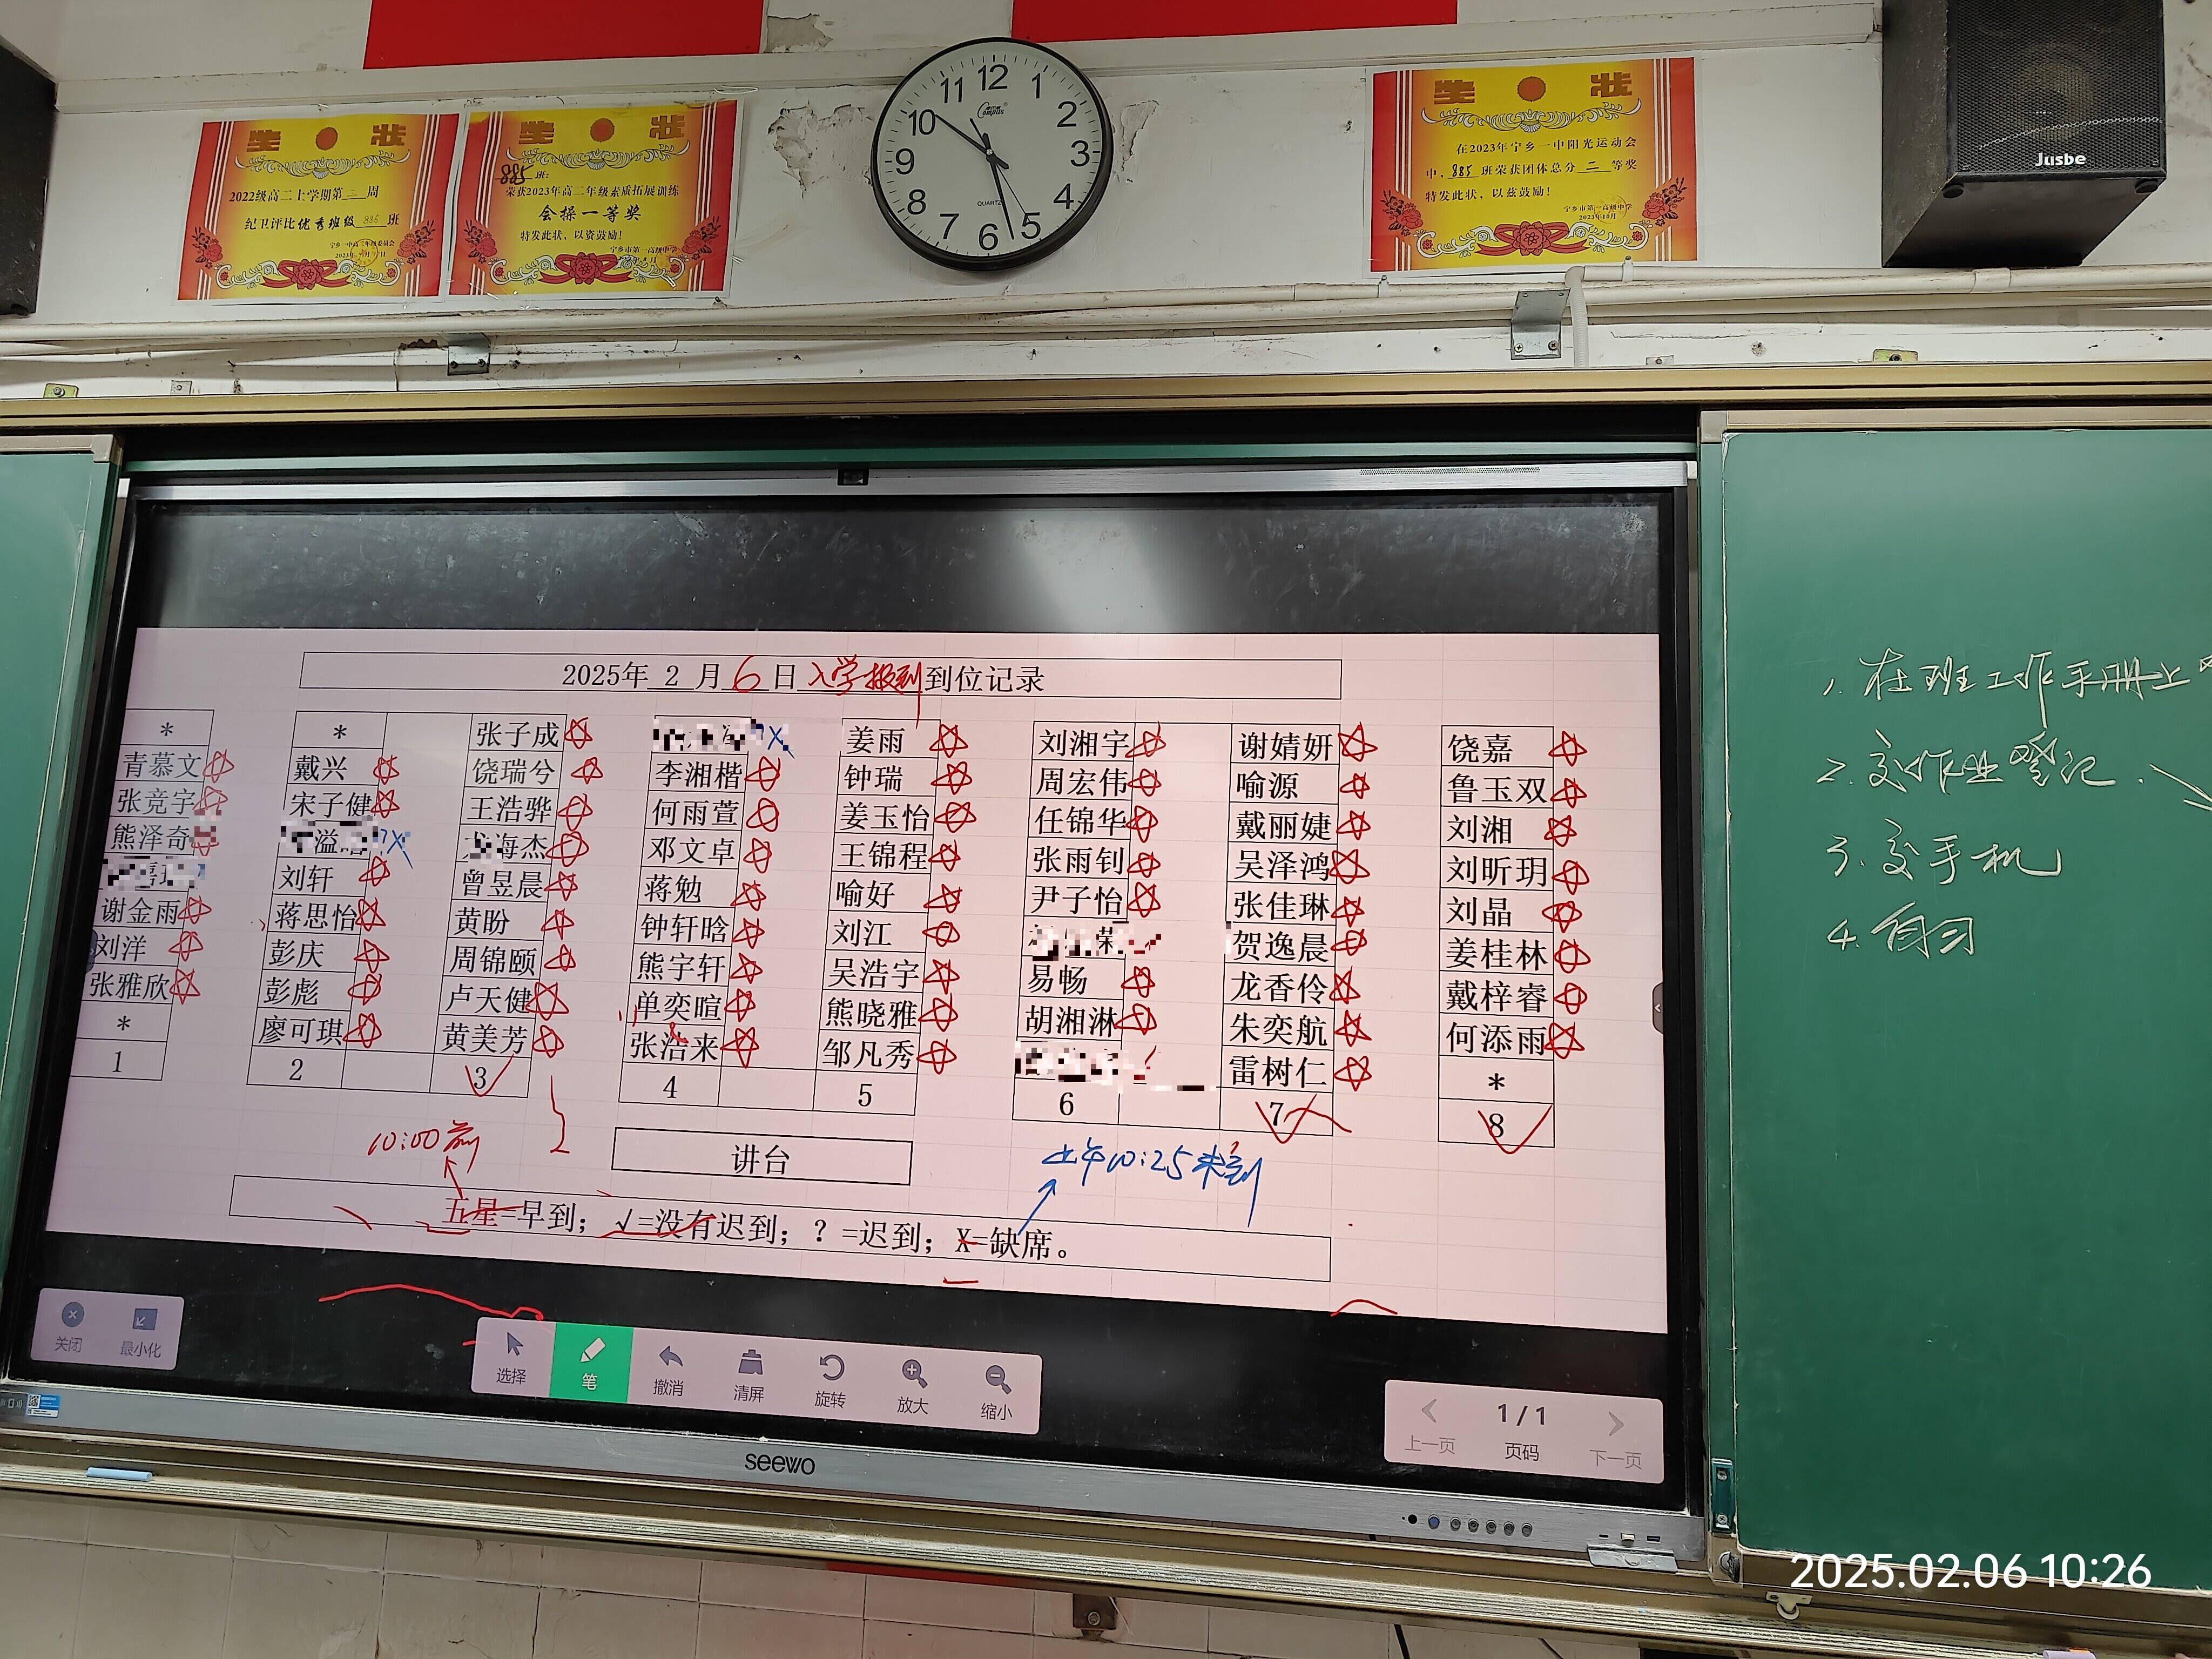 奖 状
2022级高二上学期第三周
纪卫评比优秀班级 885 班
奖 状
885 班:
荣获2023年高二年级素质拓展训练
会操一等奖
特发此状，以资鼓励！
宁乡市第一高级中学
12 1 2 3 4 5 6 7 8 9 10 11
Compas
QUARTZ
奖 状
在2023年宁乡一中阳光运动会
中，885 班荣获团体总分 二 等奖
特发此状，以兹鼓励！
宁乡市第一高级中学
2023年10月
Jusbe
2025年 2 月 6 日 入学报到 到位记录
* * 张子成 姜雨 刘湘宇 谢婧妍 饶嘉
青慕文 戴兴 饶瑞兮 李湘楷 钟瑞 周宏伟 喻源 鲁玉双
张竞宇 宋子健 王浩骅 何雨萱 姜玉怡 任锦华 戴丽婕 刘湘
熊泽奇 溢 ?X 海杰 邓文卓 王锦程 张雨钊 吴泽鸿 刘昕玥
刘轩 曾昱晨 蒋勉 喻好 尹子怡 张佳琳 刘晶
谢金雨 蒋思怡 黄盼 钟轩晗 刘江 贺逸晨 姜桂林
刘洋 彭庆 周锦颐 熊宇轩 吴浩宇 易畅 龙香伶 戴梓睿
张雅欣 彭彪 卢天健 单奕暄 熊晓雅 胡湘淋 朱奕航 何添雨
* 廖可琪 黄美芳 张浩来 邹凡秀 雷树仁 *
1 2 3 4 5 6 7 8
10:00前
讲台
上午10:25未到
五星=早到；√=没有迟到；？=迟到；X=缺席。
关闭 最小化
选择 笔 撤消 清屏 旋转 放大 缩小
1 / 1
上一页 页码 下一页
seewo
1. 在班工作手册上
2. 交作业登记.
3. 交手机
4. 自习
2025.02.06 10:26